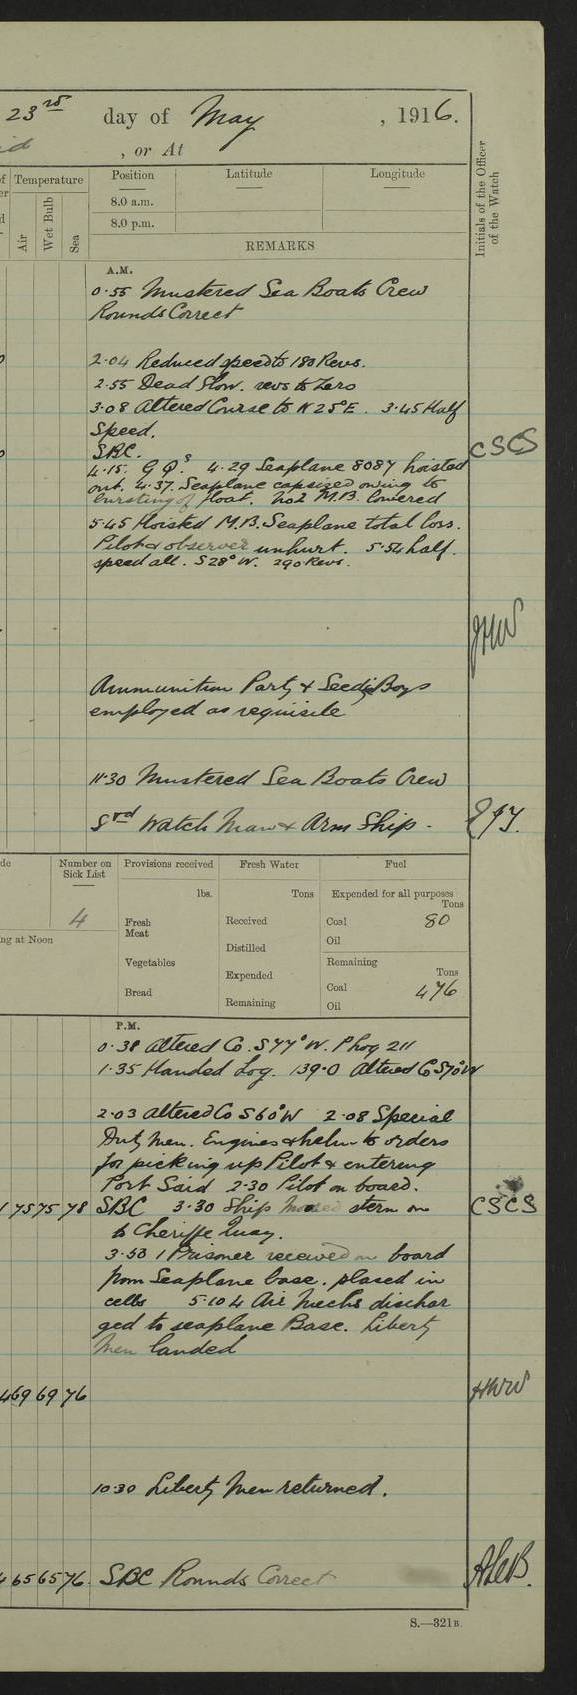 23rd day of May , 1916.
, or At
Temperature Position Latitude Longitude
Air Wet Bulb Sea
8.0 a.m.
8.0 p.m.
Initials of the Officer of the Watch
REMARKS
A.M.
0.55 Mustered Sea Boats Crew
Rounds Correct
2.04 Reduced speed to 180 Revs.
2.55 Dead Slow. revs to Zero
3.08 Altered Course to N 25° E. 3.45 Half
Speed.
SBC. CSCS
4.15. G Q.s 4.29 Seaplane 8087 hoisted
out. 4.37. Seaplane capsized owing to
bursting of float. No2 M.B. lowered
5.45 Hoisted M.B. Seaplane total loss.
Pilot & observer unhurt. 5.54 half.
speed all. S28° W. 290 Revs.
JHW
Ammunition Party & Seedie Boys
employed as requisite
11.30 Mustered Sea Boats Crew
Watch Man & Arm Ship.
Number on Sick List Provisions received Fresh Water Fuel
lbs. Tons Expended for all purposes
Tons
4 Fresh Meat Received Coal 80
Distilled Oil
ng at Noon
Vegetables Expended Remaining
Tons
Bread Coal 476
Remaining Oil
P.M.
0.38 Altered Co. S77° W. P log 211
1.35 Handed Log. 139.0 Altered Co S70° W
2.03 Altered Co S60° W 2.08 Special
Duty Men. Engines & helm to orders
for picking up Pilot & entering
Port Said 2.30 Pilot on board.
75 75 78 SBC 3.30 Ship Moored stern on CSCS
to Cheriffe Quay.
3.53 1 Prisoner received on board
from Seaplane base. placed in
cells 5.10 4 Air Mechs dischar
ged to seaplane Base. Liberty
Men landed
69 69 76 HWW
10.30 Liberty Men returned.
65 65 76. SBC Rounds Correct
S.—321B.